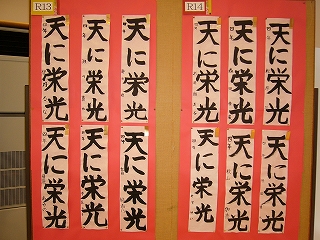 R13
R14
天に栄光
天に栄光
天に栄光
天に栄光
天に栄光
天に栄光
天に栄光
天に栄光
天に栄光
天に栄光
天に栄光
天に栄光